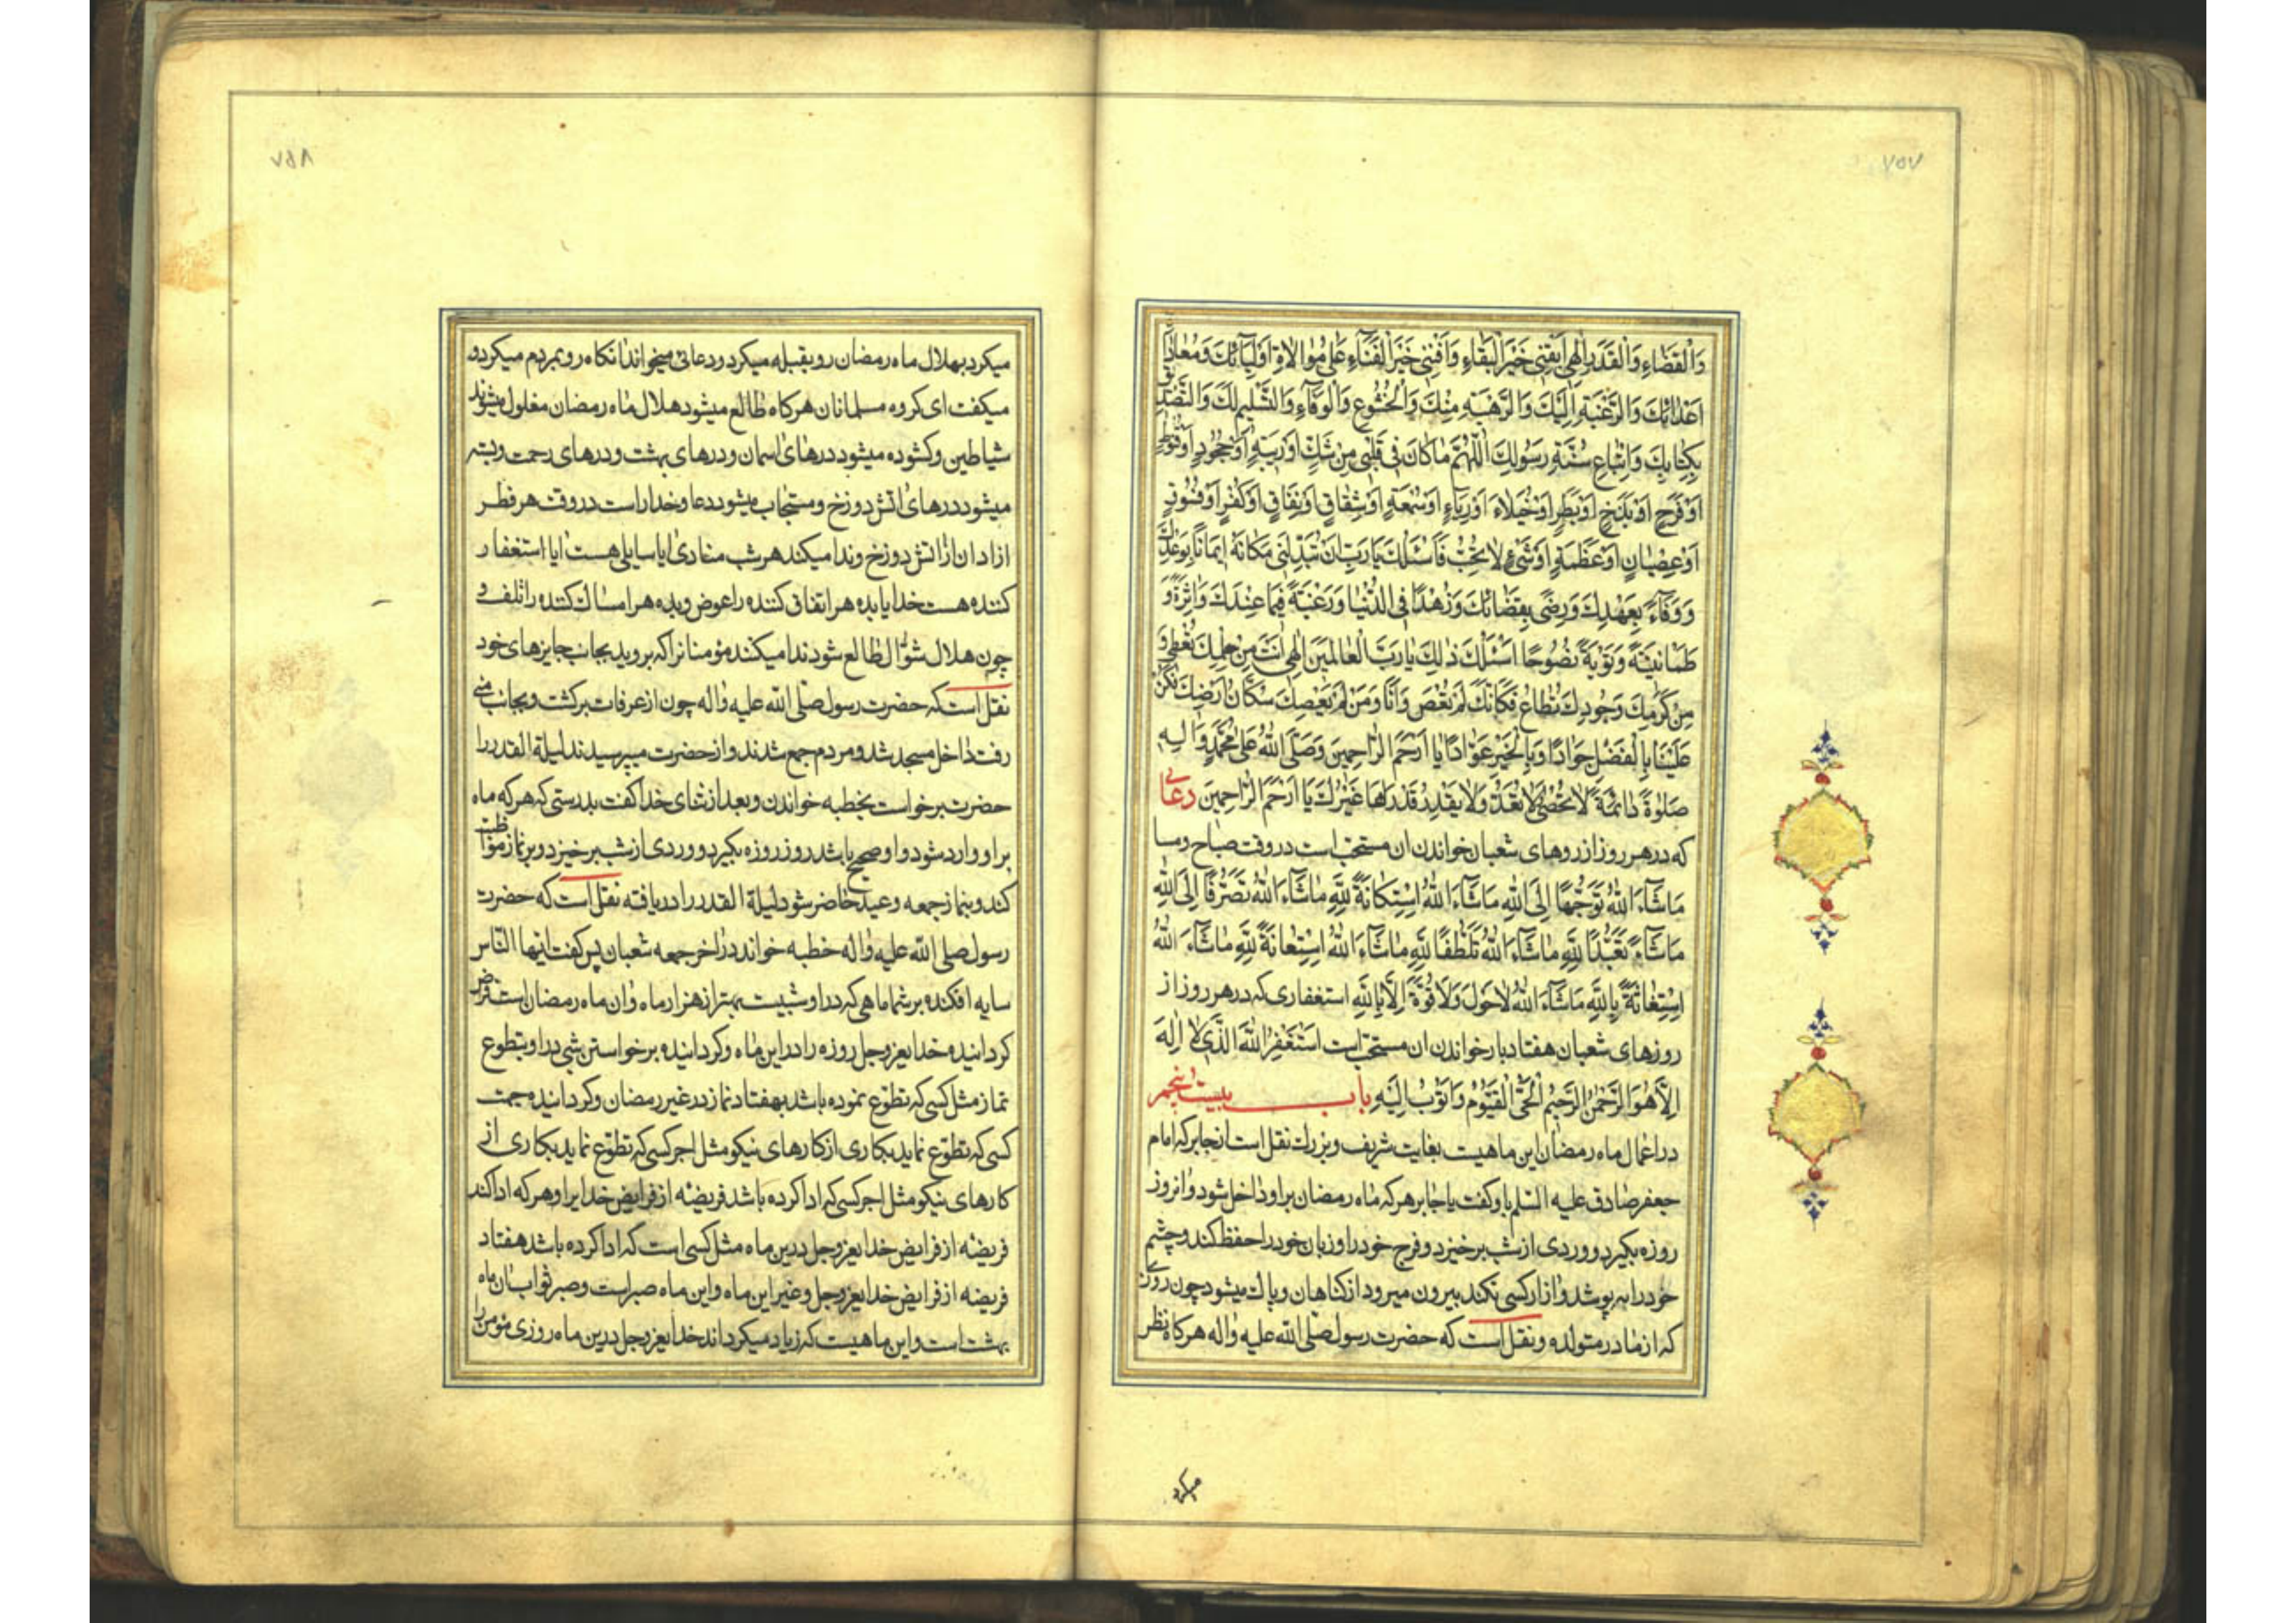 ٧٥٧
وَالْقَضَاءِ وَالْقَدَرِ اِلٰهِی اَبْقِنِی خَیْرَ الْبَقَاءِ وَاَفْنِنِی خَیْرَ الْفَنَاءِ عَلٰی مُوٰالاةِ اَوْلِیٰآئِكَ وَمُعٰادٰاةِ
اَعْدٰائِكَ وَالرَّغْبَةِ اِلَیْكَ وَالرَّهْبَةِ مِنْكَ وَالْخُشُوعِ وَالْوَفٰآءِ وَالتَّسْلِیمِ لَكَ وَالتَّصْدِیقِ
بِكِتٰابِكَ وَاتِّبٰاعِ سُنَّةِ رَسُولِكَ اَللّٰهُمَّ مٰا كٰانَ فِی قَلْبِی مِنْ شَكٍّ اَوْ رَیْبَةٍ اَوْ جُحُودٍ اَوْ قُنُوطٍ
اَوْ فَرَحٍ اَوْ بَذَخٍ اَوْ بَطَرٍ اَوْ خُیَلٰاءَ اَوْ رِیٰاءٍ اَوْ سُمْعَةٍ اَوْ شِقٰاقٍ اَوْ نِفٰاقٍ اَوْ كُفْرٍ اَوْ فُسُوقٍ
اَوْ عِصْیٰانٍ اَوْ عَظَمَةٍ اَوْ شَیْءٍ لاٰ تُحِبُّ فَاَسْئَلُكَ یٰا رَبِّ اَنْ تُبَدِّلَنِی مَكٰانَهُ اِیمٰانًا بِوَعْدِكَ
وَوَفٰآءً بِعَهْدِكَ وَرِضًی بِقَضٰائِكَ وَزُهْدًا فِی الدُّنْیٰا وَرَغْبَةً فِیمٰا عِنْدَكَ وَاَثَرَةً وَ
طُمَأْنِینَةً وَتَوْبَةً نَصُوحًا اَسْئَلُكَ ذٰلِكَ یٰا رَبَّ الْعٰالَمِینَ اِلٰهِی اَنْتَ مِنْ حِلْمِكَ تُعْصٰی وَ
مِنْ كَرَمِكَ وَجُودِكَ تُطٰاعُ فَكَاَنَّكَ لَمْ تُعْصَ وَاَنَا وَمَنْ لَمْ یَعْصِكَ سُكّٰانُ اَرْضِكَ فَكُنْ
عَلَیْنٰا بِالْفَضْلِ جَوٰادًا وَبِالْخَیْرِ عَوّٰادًا یٰا اَرْحَمَ الرّٰاحِمِینَ وَصَلَّی اللّٰهُ عَلٰی مُحَمَّدٍ وَاٰلِهِ
صَلٰوةً دٰائِمَةً لاٰ تُحْصٰی وَلاٰ تُعَدُّ وَلاٰ یَقْدِرُ قَدْرَهٰا غَیْرُكَ یٰا اَرْحَمَ الرّٰاحِمِینَ دعای
که در هر روز از روهای شعبان خواندن ان مستحب است در وقت صباح و مسا
مٰاشٰآءَ اللّٰهُ تَوَجُّهًا اِلَی اللّٰهِ مٰاشٰآءَ اللّٰهُ اِسْتِكٰانَةً لِلّٰهِ مٰاشٰآءَ اللّٰهُ تَضَرُّعًا اِلَی اللّٰهِ
مٰاشٰآءَ تَعَبُّدًا لِلّٰهِ مٰاشٰآءَ اللّٰهُ تَلَطُّفًا لِلّٰهِ مٰاشٰآءَ اللّٰهُ اِسْتِعٰانَةً لِلّٰهِ مٰاشٰآءَ اللّٰهُ
اِسْتِغٰاثَةً بِاللّٰهِ مٰاشٰآءَ اللّٰهُ لاٰ حَوْلَ وَلاٰ قُوَّةَ اِلاّٰ بِاللّٰهِ استغفاری که در هر روز از
روزهای شعبان هفتاد بار خواندن ان مستحب است اَسْتَغْفِرُ اللّٰهَ الَّذِی لاٰ اِلٰهَ
اِلاّٰ هُوَ الرَّحْمٰنُ الرَّحِیمُ الْحَیُّ الْقَیُّومُ وَاَتُوبُ اِلَیْهِ باب بیست پنجم
در اعمال ماه رمضان این ماهیست بغایت شریف و بزرك نقل است از جابر که امام
جعفر صادق علیه السلم باو کفت یا جابر هر که ماه رمضان بر او داخل شود و انروز
روزه بکیرد و وردی از شب برخیزد و فرج خود را و زبان خود را حفظ کند و چشم
خود را بپوشد و ازار کسی نکند بیرون میرود از کناهان و پاك میشود چون روزی
که از مادر متولده و نقل است که حضرت رسول صلی الله علیه و اله هر کاه نظر
میکرد
٧٥٨
میکرد بهلال ماه رمضان رو بقبله میکرد و دعائی میخواند انکاه رو بمردم میکرد و
میکفت ای کروه مسلمانان هر کاه طالع میشود هلال ماه رمضان مغلول میشوند
شیاطین و کشوده میشود درهای اسمان و درهای بهشت و درهای رحمت و بسته
میشود درهای اتش دوزخ و مستجاب میشود دعا و خدا راست در وقت هر فطر
ازادان از اتش دوزخ و ندا میکند هر شب منادی ایا سایلی هست ایا استغفار
کننده هست خدایا بده هر انفاق کننده را عوض و بده هر امساك کننده را تلف و
چون هلال شوّال طالع شود ندا میکند مؤمنانرا که بروید بجانب جایزهای خود
نقل است که حضرت رسول صلی الله علیه و اله چون از عرفات برکشت و بجانب منی
رفت داخل مسجد شد و مردم جمع شدند و از حضرت میپرسیدند لیلة القدر را
حضرت برخواست بخطبه خواندن و بعد از ثنای خدا کفت بدرستی که هر که ماه
بر او وارد شود و او صحیح باشد روز روزه بکیرد و وردی از شب برخیزد و بر نماز مواظبت
کند و بنماز جمعه و عید حاضر شود لیلة القدر را دریافته نقل است که حضرت
رسول صلی الله علیه و اله خطبه خواند در اخر جمعه شعبان پس کفت ایها الناس
سایه افکنده بر شما ماهی که در او شبیست بهتر از هزار ماه و ان ماه رمضان است فرض
کردانیده خدایعزوجل روزه را در این ماه و کردانیده برخواستن شبی در او بتطوع
نماز مثل کسی که تطوع نموده باشد بهفتاد نماز در غیر رمضان و کردانیده جهت
کسی که تطوع نماید بکاری از کارهای نیکو مثل اجر کسی که تطوع نماید بکاری از
کارهای نیکو مثل اجر کسی که ادا کرده باشد فریضه از فرایض خدا بر او هر که ادا کند
فریضه از فرایض خدایعزوجل درین ماه مثل کسی است که ادا کرده باشد هفتاد
فریضه از فرایض خدایعزوجل و غیر این ماه و این ماه صبر است و صبر ثواب ان ماه
بهشت است و این ماهیست که زیاد میکرداند خدایعزوجل درین ماه روزی مؤمن را